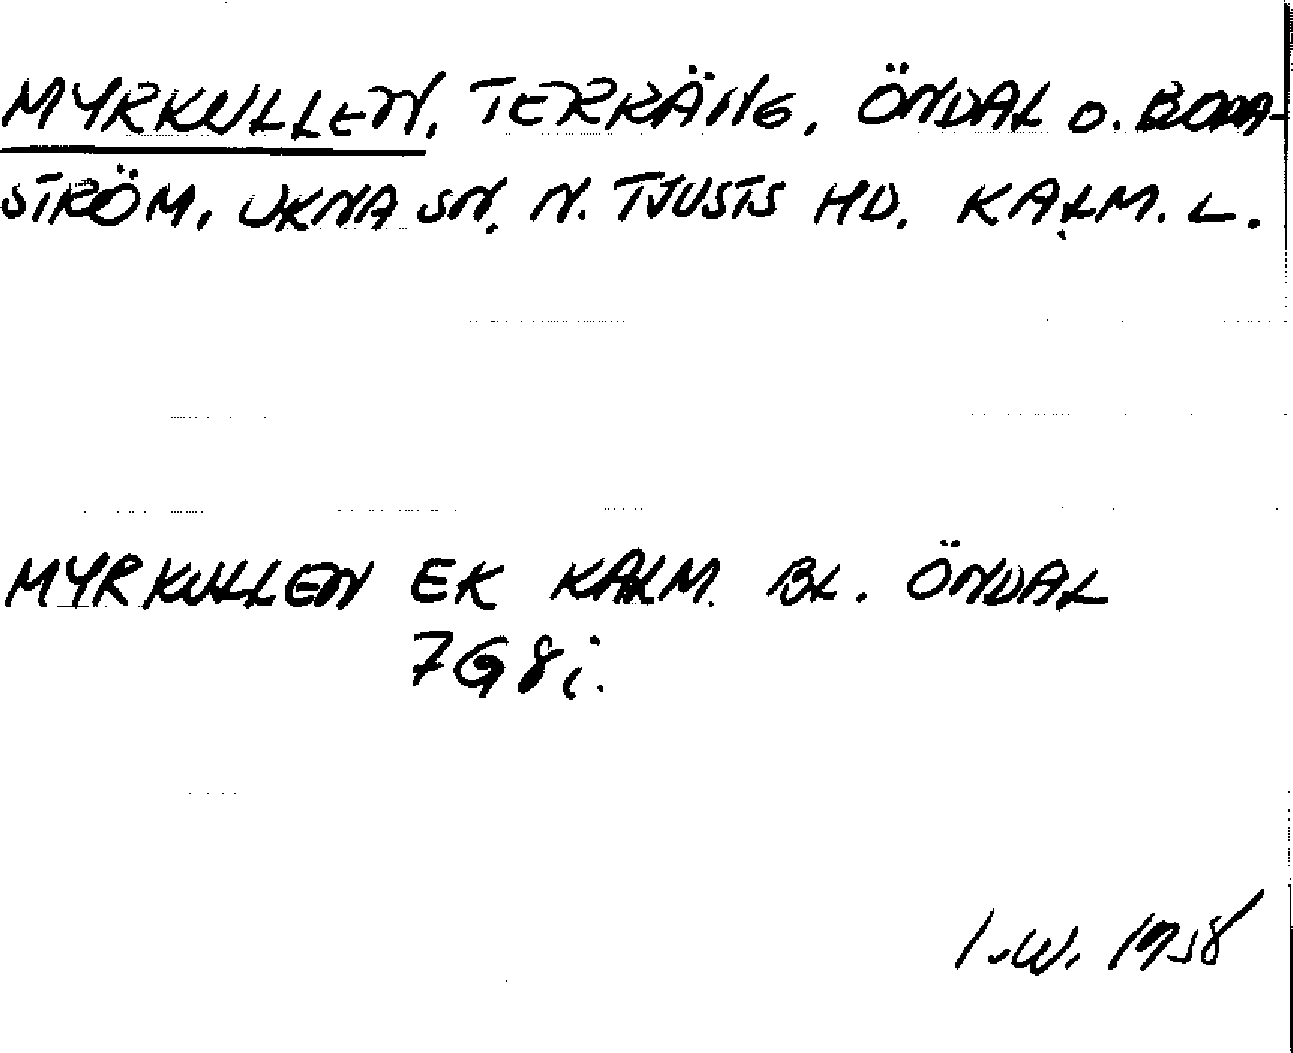 MYRKULLEN, TERRÄNG, ÖNDAL O. BODA-
STRÖM, UKNA SN. N. TJUSTS HD. KALM. L.
MYRKULLEN EK KALM. BL. ÖNDAL
7G8i.
I.W. 1958